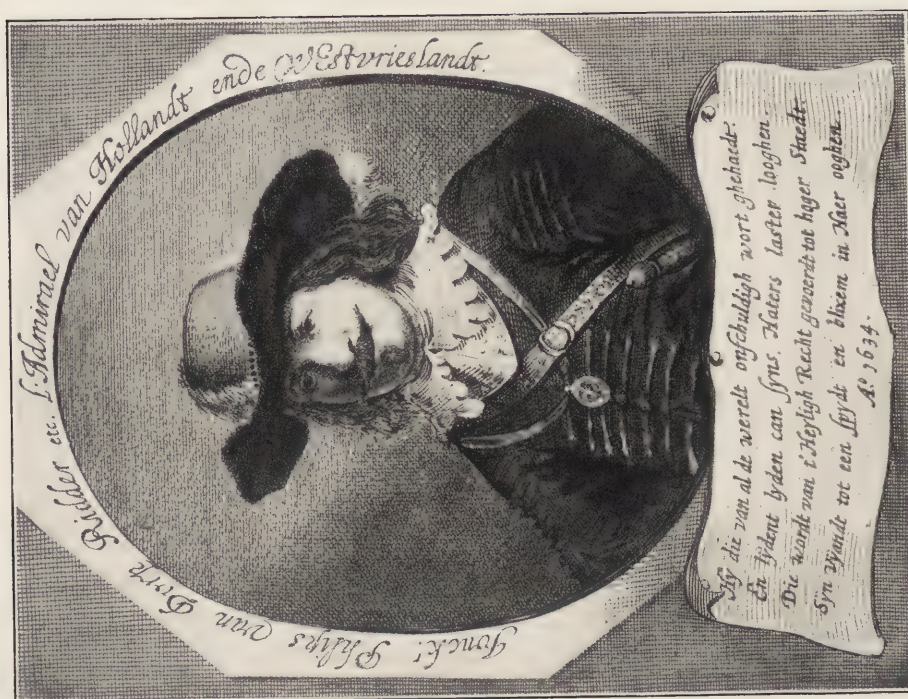 Jonckr. Philips van Dorp Ridder etc. L. Admirael van Hollandt ende WEstvrieslandt.
Hy die van al de werelt onschuldigh wort ghehaedt.
En lydent lyden can syns Haters laster looghen.
Die wordt van t'Heyligh Recht gevoerdt tot hoger Staedt.
Syn Vyandt tot een spydt en blixem in Haer ooghen.
A.º 1634